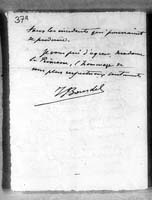 37a
tous les incidents qui pourraient
se produire.
Je vous prie d'agréer Madame
la Princesse, l'hommage de
mes plus respectueux sentiments